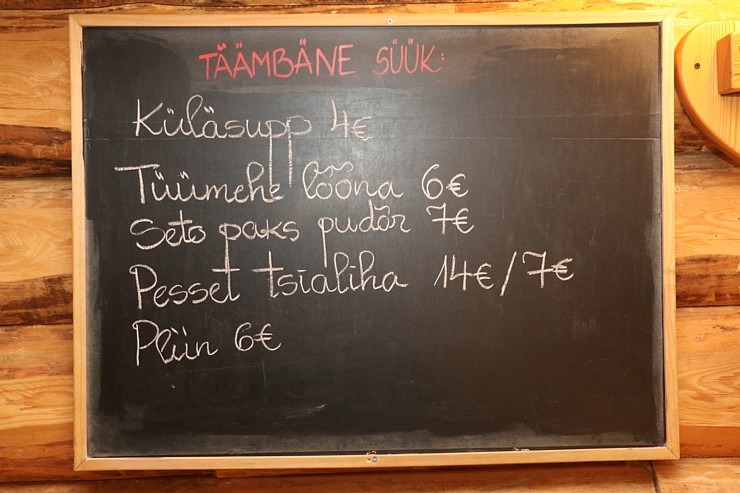 TÄÄMBÄNE SÜÜK:
Küläsupp 4€
Tüümehe lõõna 6€
Seto paks pudõr 7€
Pesset tsialiha 14€/7€
Pliin 6€